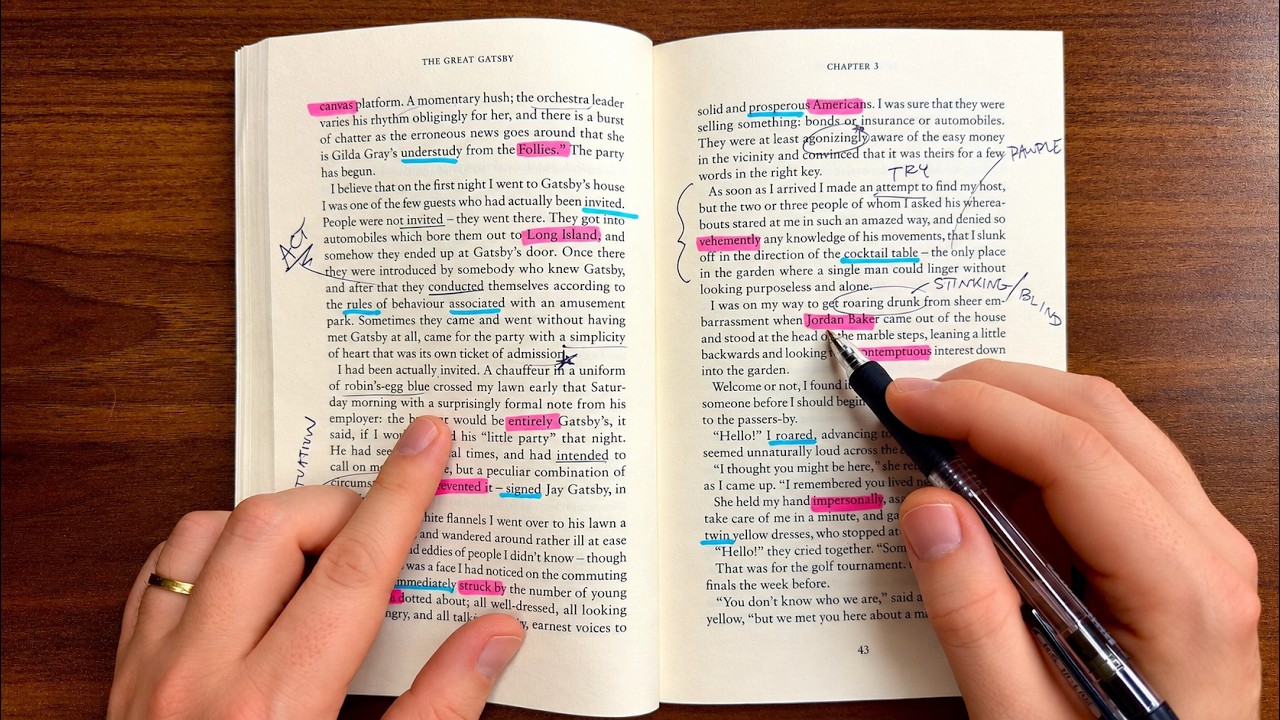 THE GREAT GATSBY
canvas platform. A momentary hush; the orchestra leader
varies his rhythm obligingly for her, and there is a burst
of chatter as the erroneous news goes around that she
is Gilda Gray's understudy from the Follies." The party
has begun.
I believe that on the first night I went to Gatsby's house
I was one of the few guests who had actually been invited.
People were not invited – they went there. They got into
automobiles which bore them out to Long Island, and
somehow they ended up at Gatsby's door. Once there
ACT
they were introduced by somebody who knew Gatsby,
and after that they conducted themselves according to
the rules of behaviour associated with an amusement
park. Sometimes they came and went without having
met Gatsby at all, came for the party with a simplicity
of heart that was its own ticket of admission.
I had been actually invited. A chauffeur in a uniform
of robin's-egg blue crossed my lawn early that Satur-
day morning with a surprisingly formal note from his
employer: the would be entirely Gatsby's, it
said, if I his "little party" that night.
He had times, and had intended to
call on , but a peculiar combination of
UATION
it – signed Jay Gatsby, in
flannels I went over to his lawn a
and wandered around rather ill at ease
eddies of people I didn't know – though
was a face I had noticed on the commuting
struck by the number of young
dotted about; all well-dressed, all looking
and all earnest voices to
CHAPTER 3
solid and prosperous Americans. I was sure that they were
selling something: bonds or insurance or automobiles.
They were at least agonizingly aware of the easy money
in the vicinity and convinced that it was theirs for a few
words in the right key.
TRY
As soon as I arrived I made an attempt to find my host,
but the two or three people of whom I asked his wherea-
bouts stared at me in such an amazed way, and denied so
vehemently any knowledge of his movements, that I slunk
off in the direction of the cocktail table – the only place
in the garden where a single man could linger without
looking purposeless and alone.
STINKING/BLIND
I was on my way to get roaring drunk from sheer em-
barrassment when Jordan Baker came out of the house
and stood at the head of the marble steps, leaning a little
backwards and looking interest down
into the garden.
Welcome or not, I found
someone before I should begin
to the passers-by.
"Hello!" I roared, advancing
seemed unnaturally loud across the
"I thought you might be here," she
as I came up. "I remembered you lived
She held my hand impersonally,
take care of me in a minute, and
twin yellow dresses, who stopped at
"Hello!" they cried together.
That was for the golf tournament.
finals the week before.
"You don't know who we are," said
yellow, "but we met you here about a
43